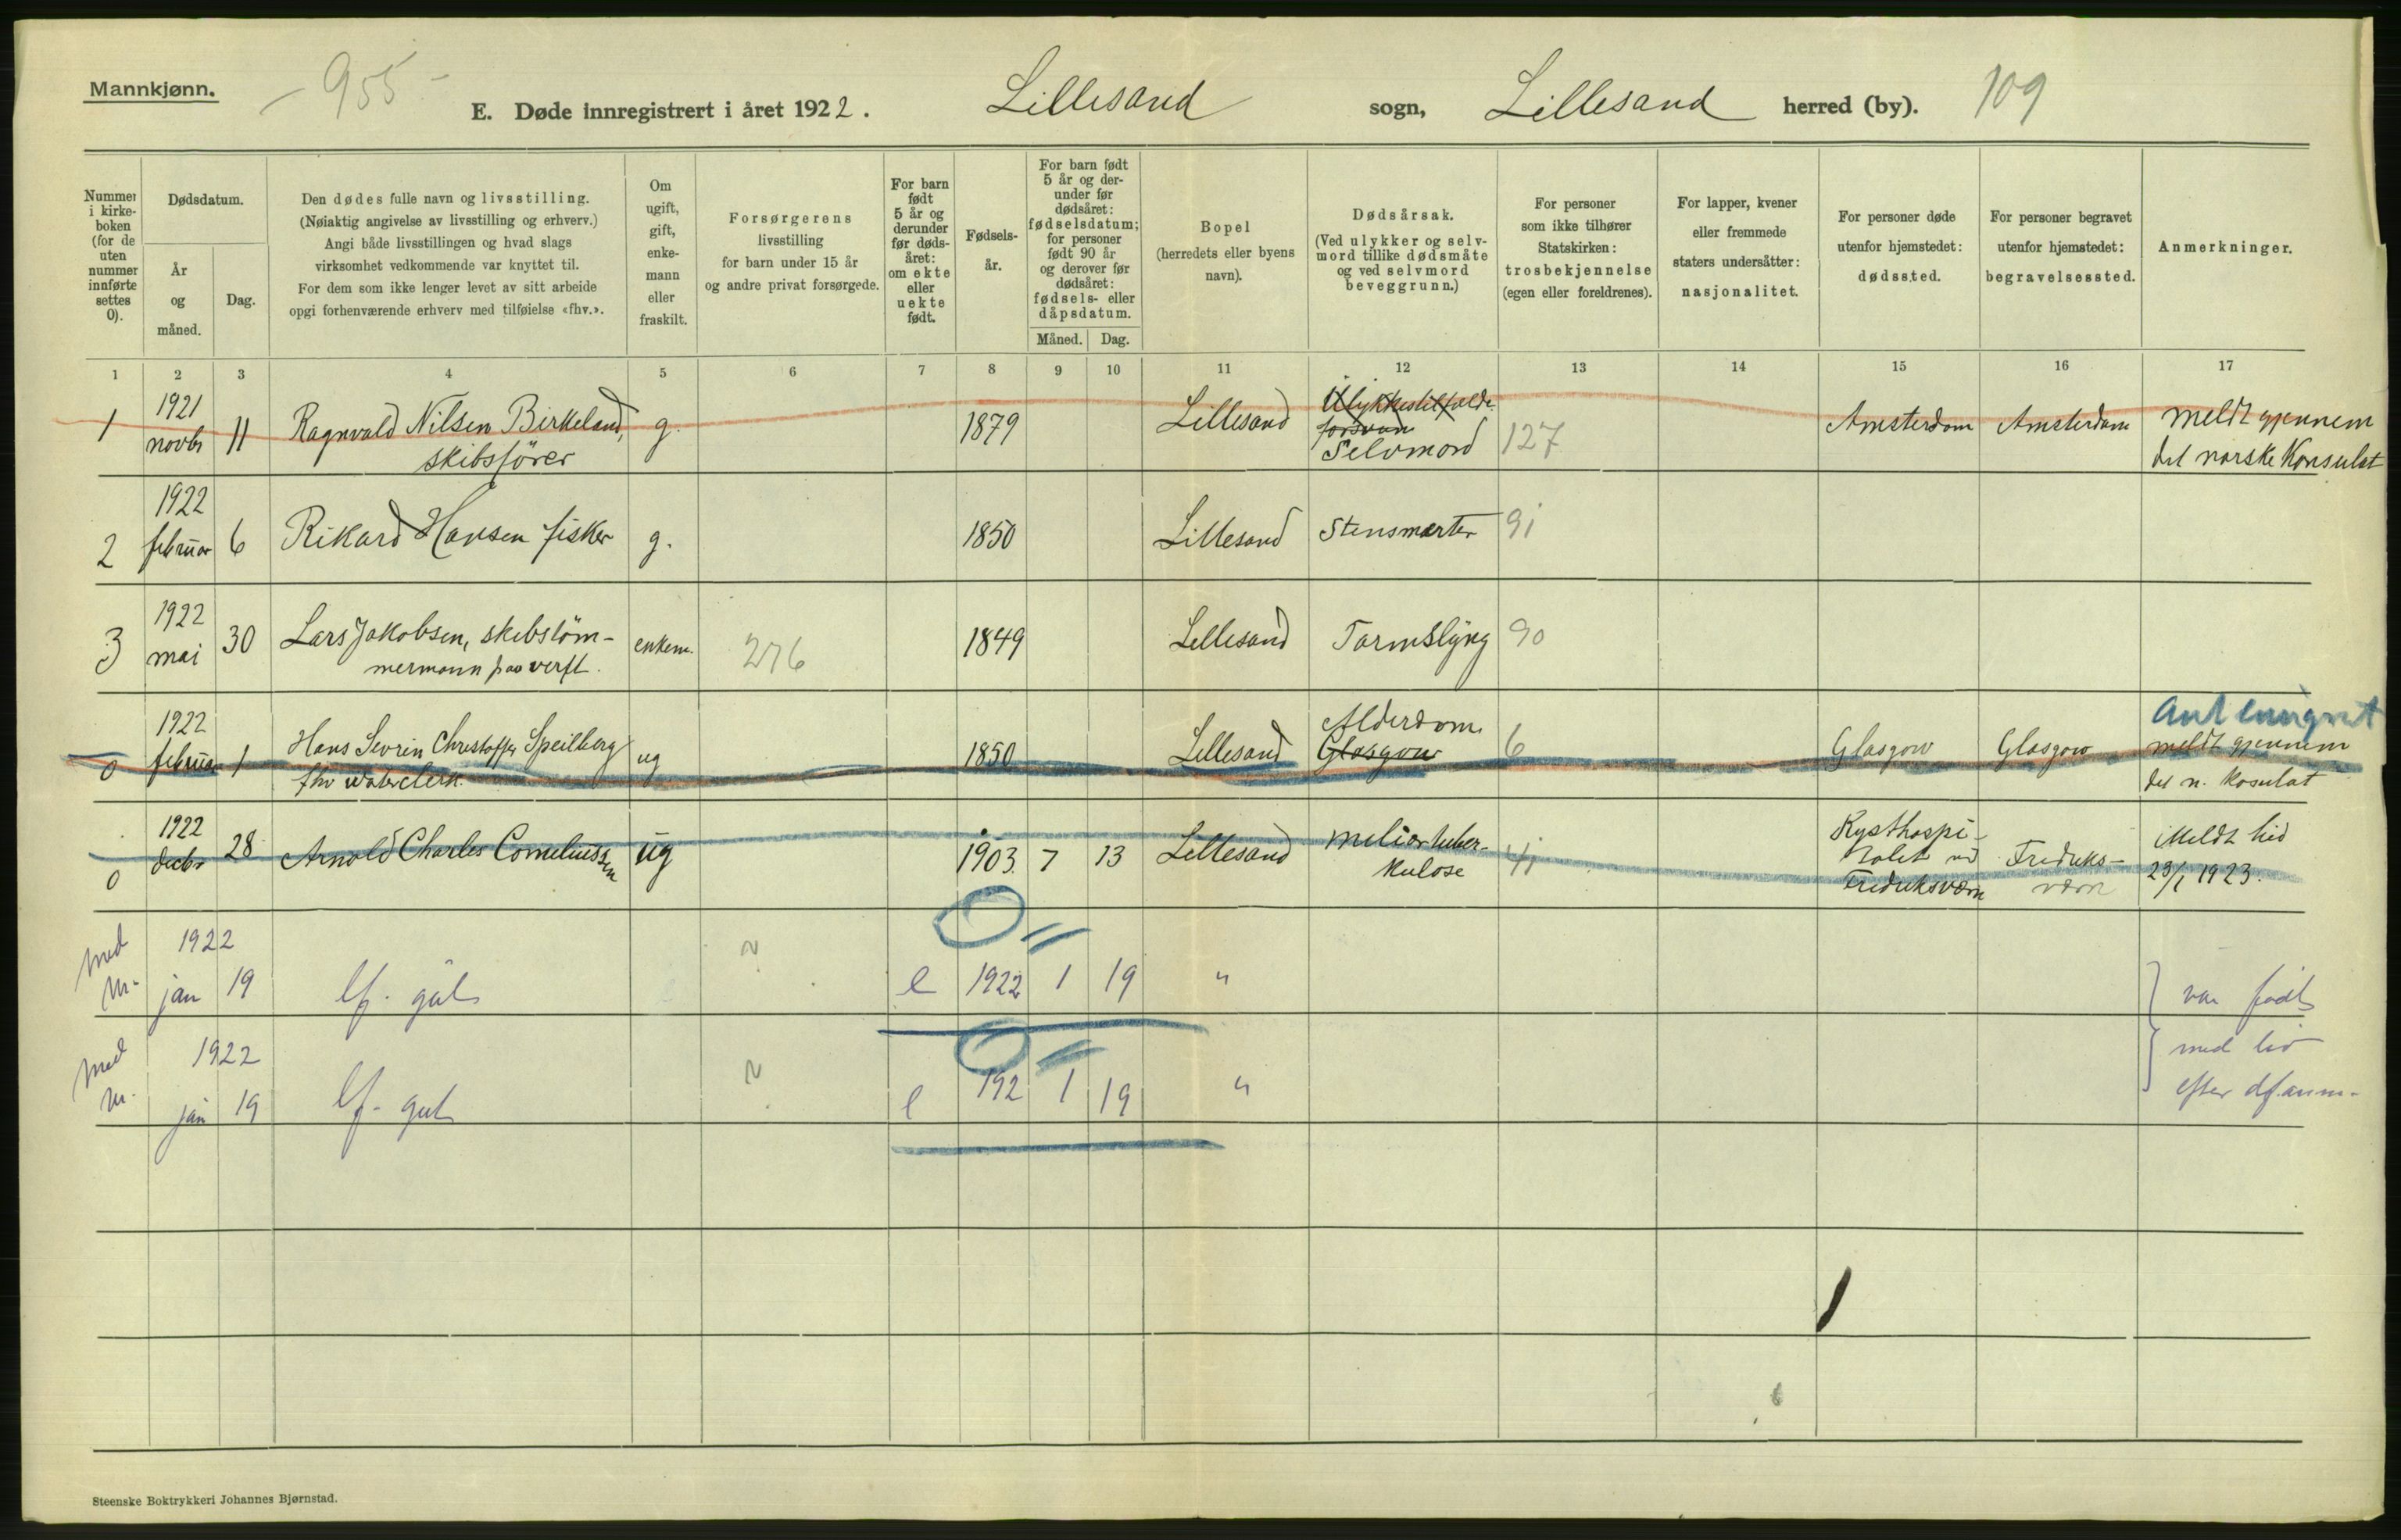 Mannkjønn.
- 955 -
E. Døde innregistrert i året 1922. Lillesand sogn, Lillesand herred (by). 109
Nummer i kirke-boken (for de uten nummer innførte settes 0).
Dødsdatum.
År og måned.
Dag.
Den dødes fulle navn og livsstilling.
(Nøiaktig angivelse av livsstilling og erhverv.)
Angi både livsstillingen og hvad slags
virksomhet vedkommende var knyttet til.
For dem som ikke lenger levet av sitt arbeide
opgi forhenværende erhverv med tilføielse «fhv.».
Om ugift, gift, enke-mann eller fraskilt.
Forsørgerens
livsstilling
for barn under 15 år
og andre privat forsørgede.
For barn født 5 år og derunder før døds-året: om ekte eller uekte født.
Fødsels-år.
For barn født 5 år og der-under før dødsåret: fødselsdatum; for personer født 90 år og derover før dødsåret: fødsels- eller dåpsdatum.
Måned.
Dag.
Bopel
(herredets eller byens navn).
Dødsårsak.
(Ved ulykker og selv-mord tillike dødsmåte og ved selvmord beveggrunn.)
For personer
som ikke tilhører
Statskirken:
trosbekjennelse
(egen eller foreldrenes).
For lapper, kvener
eller fremmede
staters undersåtter:
nasjonalitet.
For personer døde
utenfor hjemstedet:
dødssted.
For personer begravet
utenfor hjemstedet:
begravelsessted.
Anmerkninger.
1 2 3 4 5 6 7 8 9 10 11 12 13 14 15 16 17
1 1921 novbr 11 Ragnvald Nilsen Birkeland, skibsfører g. 1879 Lillesand Ulykkestilfælde forsvun Selvmord 127 Amsterdam Amsterdam meldt gjennem det norske Konsulat
2 1922 februar 6 Rikard Hansen fisker g. 1850 Lillesand Stensmerter 91
3 1922 mai 30 Lars Jakobsen, skibstøm-mermann paa verft. enkem. 276 1849 Lillesand Tarmslyng 90
0 1922 februar 1 Hans Sevrin Christoffer Speilberg fhv waterclerk. ug 1850 Lillesand Alderdom. Glasgow 6 Glasgow Glasgow meldt gjennem det n. Kosulat
0 1922 decbr 28 Arnold Charles Corneliussen ug 1903. 7 13 Lillesand miliartuber-kulose 41 Kysthospi-talet ved Fredriksværn Fredriks-værn Meldt hid 29/1 1923.
med nr. 1922 jan 19 lf. gut ~ e 1922 1 19 " var født
med nr. 1922 jan 19 lf. gut ~ e 192 1 19 " med liv
efter df. anm.
Steenske Boktrykkeri Johannes Bjørnstad.